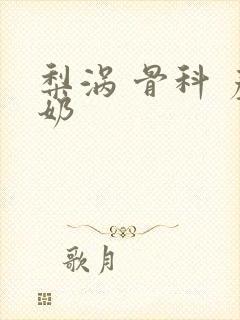 梨涡 骨科
奶
歌月